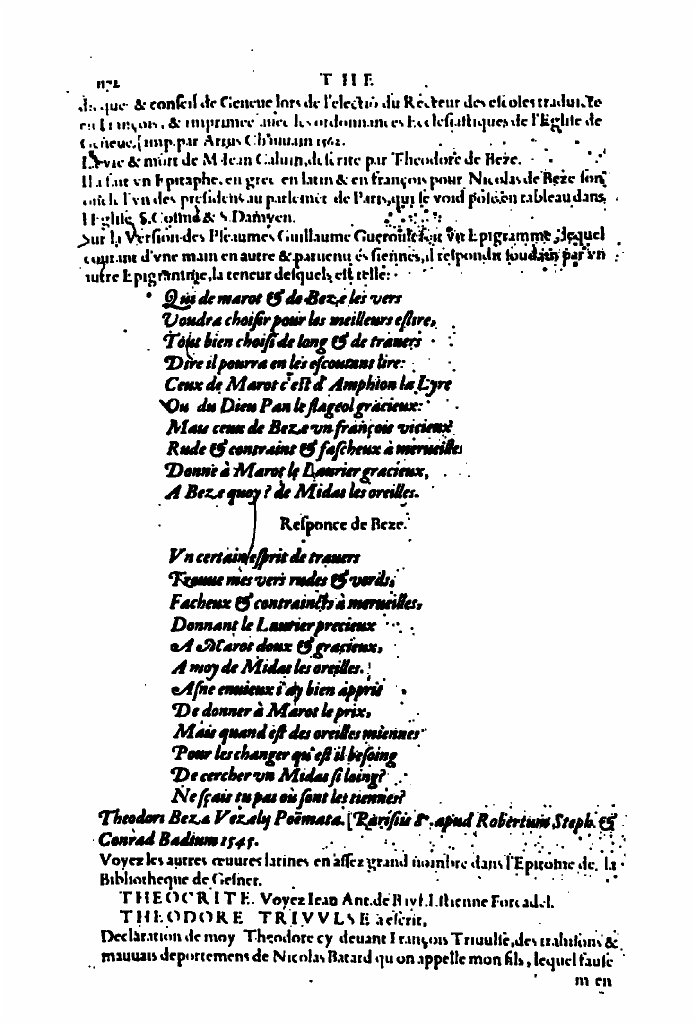 1172 THE
& conseil de Geneue lors de l'electiō du Recteur des escoles traduicte
en François, & imprimee auec les ordonnances Ecclesiastiques de l'Eglise de
Geneue. [imp. par Artus Chauuin 1562.
La vie & mort de M. Iean Caluin, descrite par Theodore de Beze.
Il a fait vn Epitaphe, en grec en latin & en françois pour Nicolas de Beze son
oncle l'vn des presidens au parlemēt de Paris, qui se void posé en tableau dans
l'Eglise S. Cosme & S. Damyen.
Sur la Version des Pseaumes Guillaume Gueroult feit vn Epigramme, lequel
courant d'vne main en autre & paruenu és siennes, il respondit soudain par vn
autre Epigramme, la teneur desquels est telle:
Qui de marot & de Beze les vers
Voudra choisir pour les meilleurs eslire,
Tout bien choisi de long & de trauers
Dire il pourra en les escoutant lire:
Ceux de Marot c'est d'Amphion la Lyre
Ou du Dieu Pan le flageol gracieux:
Mais ceux de Beze vn françois vicieux
Rude & contraint & fascheux à merueilles
Donne à Marot le Laurier gracieux,
A Beze quoy? de Midas les oreilles.
Responce de Beze.
Vn certain esprit de trauers
Trouue mes vers rudes & verds,
Facheux & contraincts à merueilles,
Donnant le Laurier precieux
A Marot doux & gracieux,
A moy de Midas les oreilles.
Asne enuieux i'ay bien appris
De donner à Marot le prix,
Mais quand est des oreilles miennes
Pour les changer qu'est il besoing
De cercher vn Midas si loing?
Ne sçais tu pas où sont les tiennes?
Theodori Beza Vezaly Poëmata. [Parisiis 8°. apud Robertum Steph. &
Conrad Badium 1545.
Voyez les autres œuures latines en assez grand nombre dans l'Epitome de la
Bibliotheque de Gesner.
THEOCRITE. Voyez Iean Ant. de Bayf. Estienne Forcadel.
THEODORE TRIVVLSE a escrit,
Declaration de moy Theodore cy deuant François Triuulse, des trahisons &
mauuais deportemens de Nicolas Batard qu on appelle mon fils, lequel fause
m en